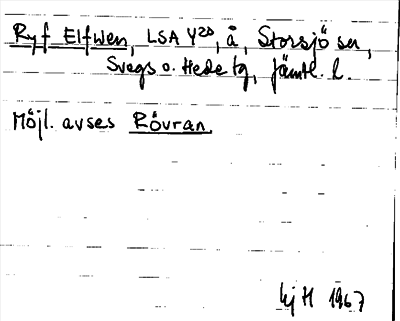 Ryf Elfwen, LSA Y20, å, Storsjö sn,
Svegs o. Hede tg, Jämtl. l.
Möjl. avses Rövran.
hj H 1967